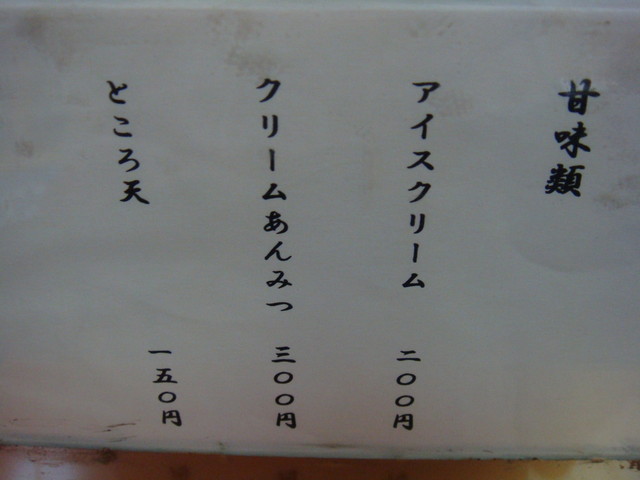 甘味類
アイスクリーム 二〇〇円
クリームあんみつ 三〇〇円
ところ天 一五〇円